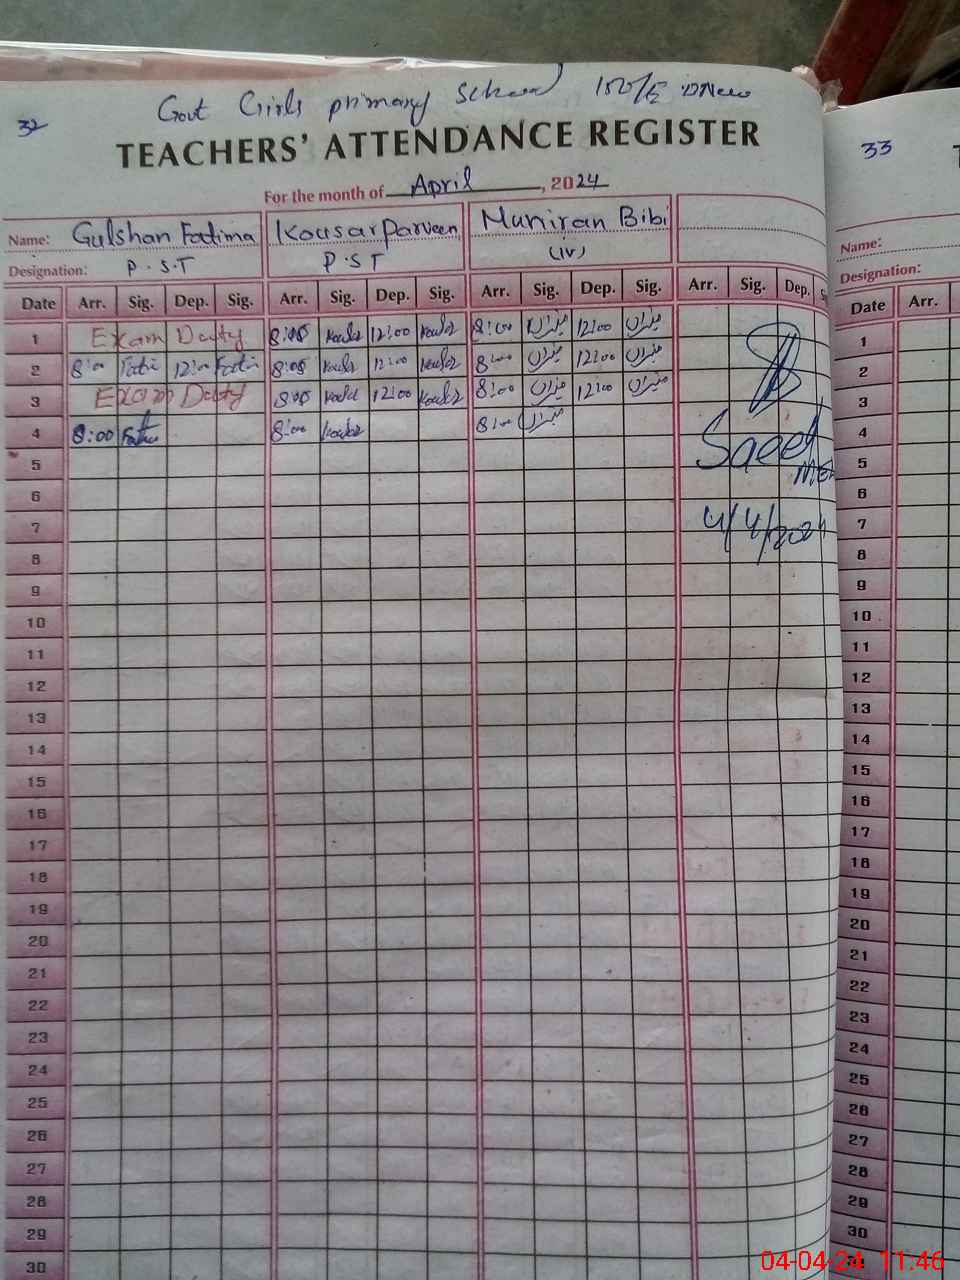 32
Govt Girls primary School
TEACHERS' ATTENDANCE REGISTER
For the month of April, 2024
Name: Gulshan Fatima Kousar Parveen Muniran Bibi
Designation: P.S.T P.S.T (IV)
Date Arr. Sig. Dep. Sig. Arr. Sig. Dep. Sig. Arr. Sig. Dep. Sig. Arr. Sig. Dep.
1 Exam Duty 8:05 12:00 8:00 12:00
2 8:00 12:00 8:05 12:00 8:00 12:00
3 Exam Duty 8:05 12:00 8:00 12:00
4 8:00 8:00 8:00
Saeed
5
6
7 4/4/2024
8
9
10
11
12
13
14
15
16
17
18
19
20
21
22
23
24
25
26
27
28
29
30
33
Name:
Designation:
Date Arr.
1
2
3
4
5
6
7
8
9
10
11
12
13
14
15
16
17
18
19
20
21
22
23
24
25
26
27
28
29
30
04-04-24 11.46